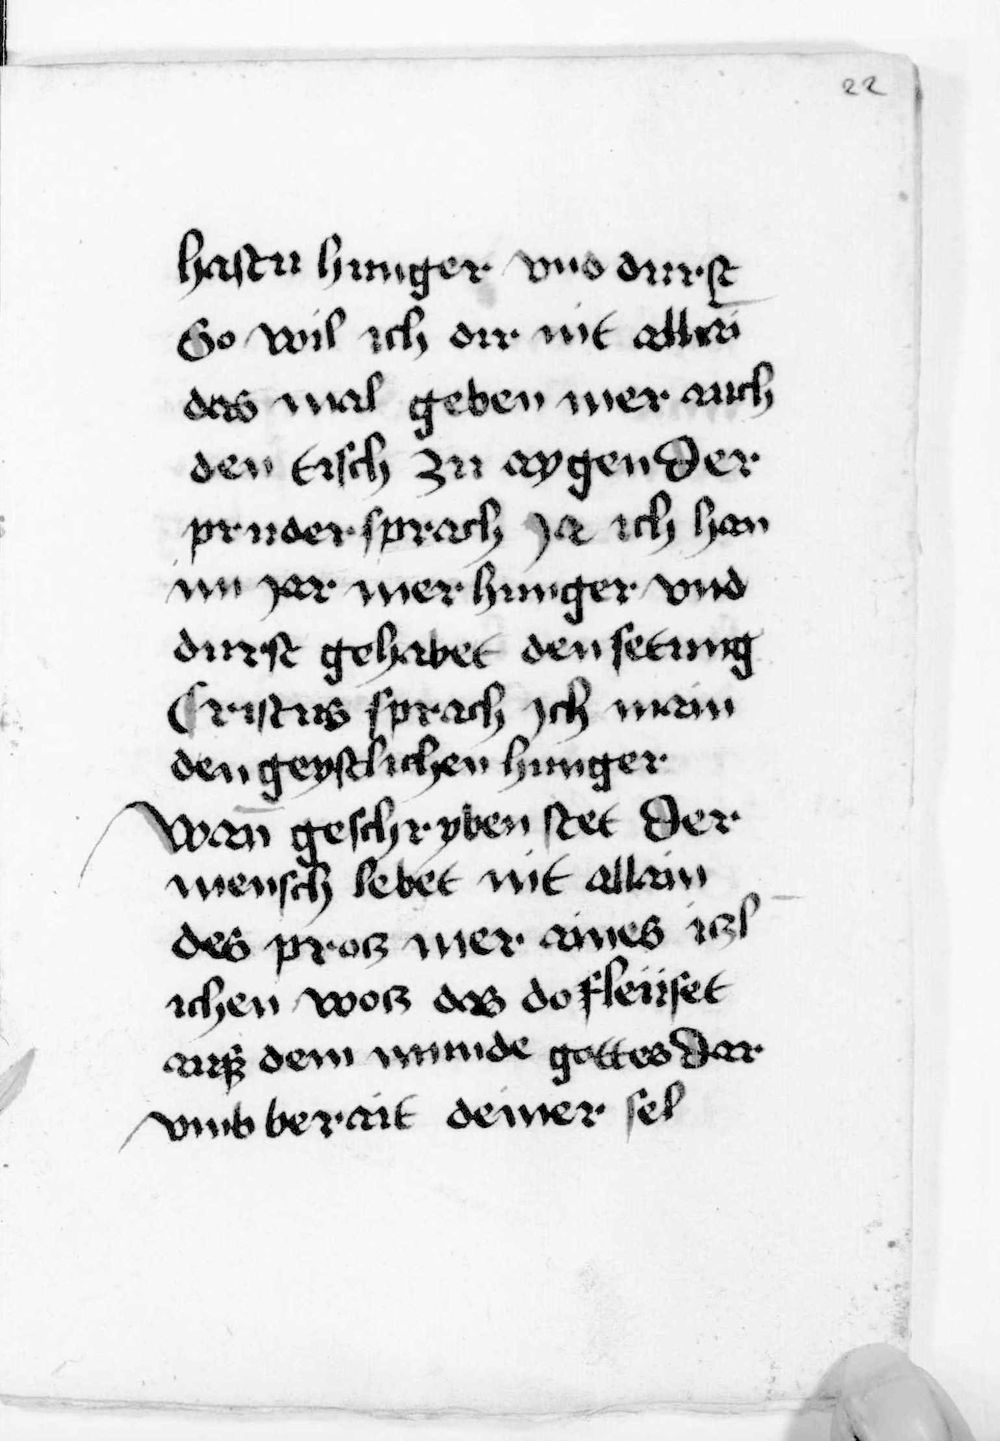 22
hastu hunger vnd durst
So wil ich dir nit allaī
das mal geben mer auch
den tisch zu aygen Der
pruder sprach Ja ich han
im jar mer hunger vnd
durst gehabet den setung
Cristus sprach Ich main
den geystlichen hunger
wan̄ geschryben stet Der
mensch lebet nit allain
des protz mer aines itzl
ichen wotz das do fleüset
auß dem munde gottes Dar
vmb berait deiner sel